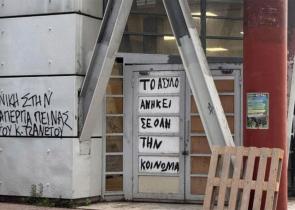 ΝΙΚΗ ΣΤΗΝ
ΑΠΕΡΓΙΑ ΠΕΙΝΑΣ
ΤΟΥ Κ. ΤΖΑΝΕΤΟΥ
ΤΟ ΑΣΥΛΟ
ΑΝΗΚΕΙ
ΣΕ ΟΛΗ
ΤΗΝ
ΚΟΙΝΩΝΙΑ